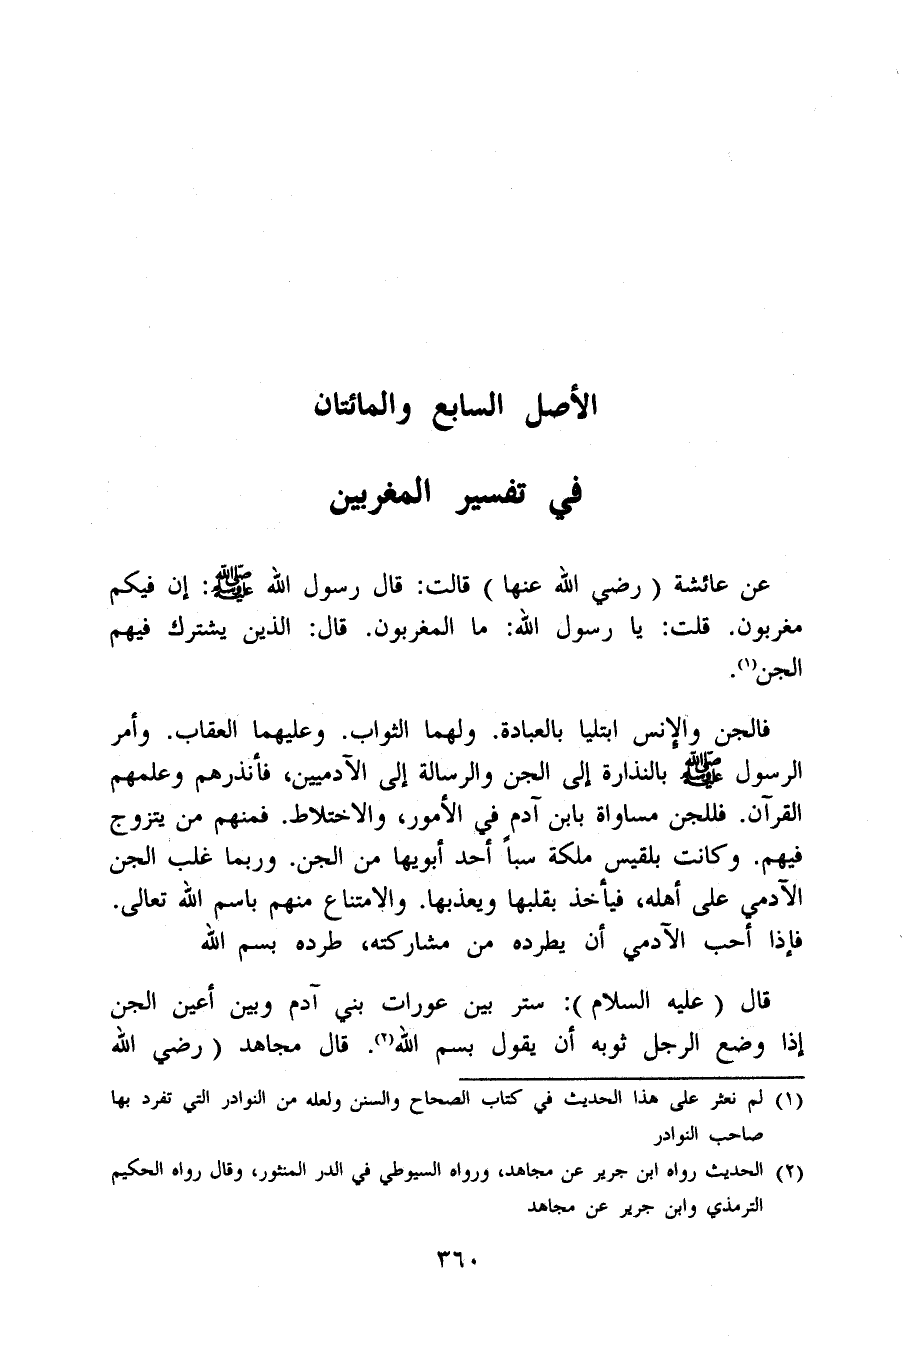 الأصل السابع والمائتان
في تفسير المغربين
عن عائشة ( رضي الله عنها ) قالت: قال رسول الله ﷺ: إن فيكم
مغربون. قلت: يا رسول الله: ما المغربون. قال: الذين يشترك فيهم
الجن(١).
فالجن والإنس ابتليا بالعبادة. ولهما الثواب. وعليهما العقاب. وأمر
الرسول ﷺ بالنذارة إلى الجن والرسالة إلى الآدميين، فأنذرهم وعلمهم
القرآن. فللجن مساواة بابن آدم في الأمور، والاختلاط. فمنهم من يتزوج
فيهم. وكانت بلقيس ملكة سبأ أحد أبويها من الجن. وربما غلب الجن
الآدمي على أهله، فيأخذ بقلبها ويعذبها. والامتناع منهم باسم الله تعالى.
فإذا أحب الآدمي أن يطرده من مشاركته، طرده بسم الله
قال ( عليه السلام ): ستر بين عورات بني آدم وبين أعين الجن
إذا وضع الرجل ثوبه أن يقول بسم الله(٢). قال مجاهد ( رضي الله
(١) لم نعثر على هذا الحديث في كتاب الصحاح والسنن ولعله من النوادر التي تفرد بها
صاحب النوادر
(٢) الحديث رواه ابن جرير عن مجاهد، ورواه السيوطي في الدر المنثور، وقال رواه الحكيم
الترمذي وابن جرير عن مجاهد
٣٦٠